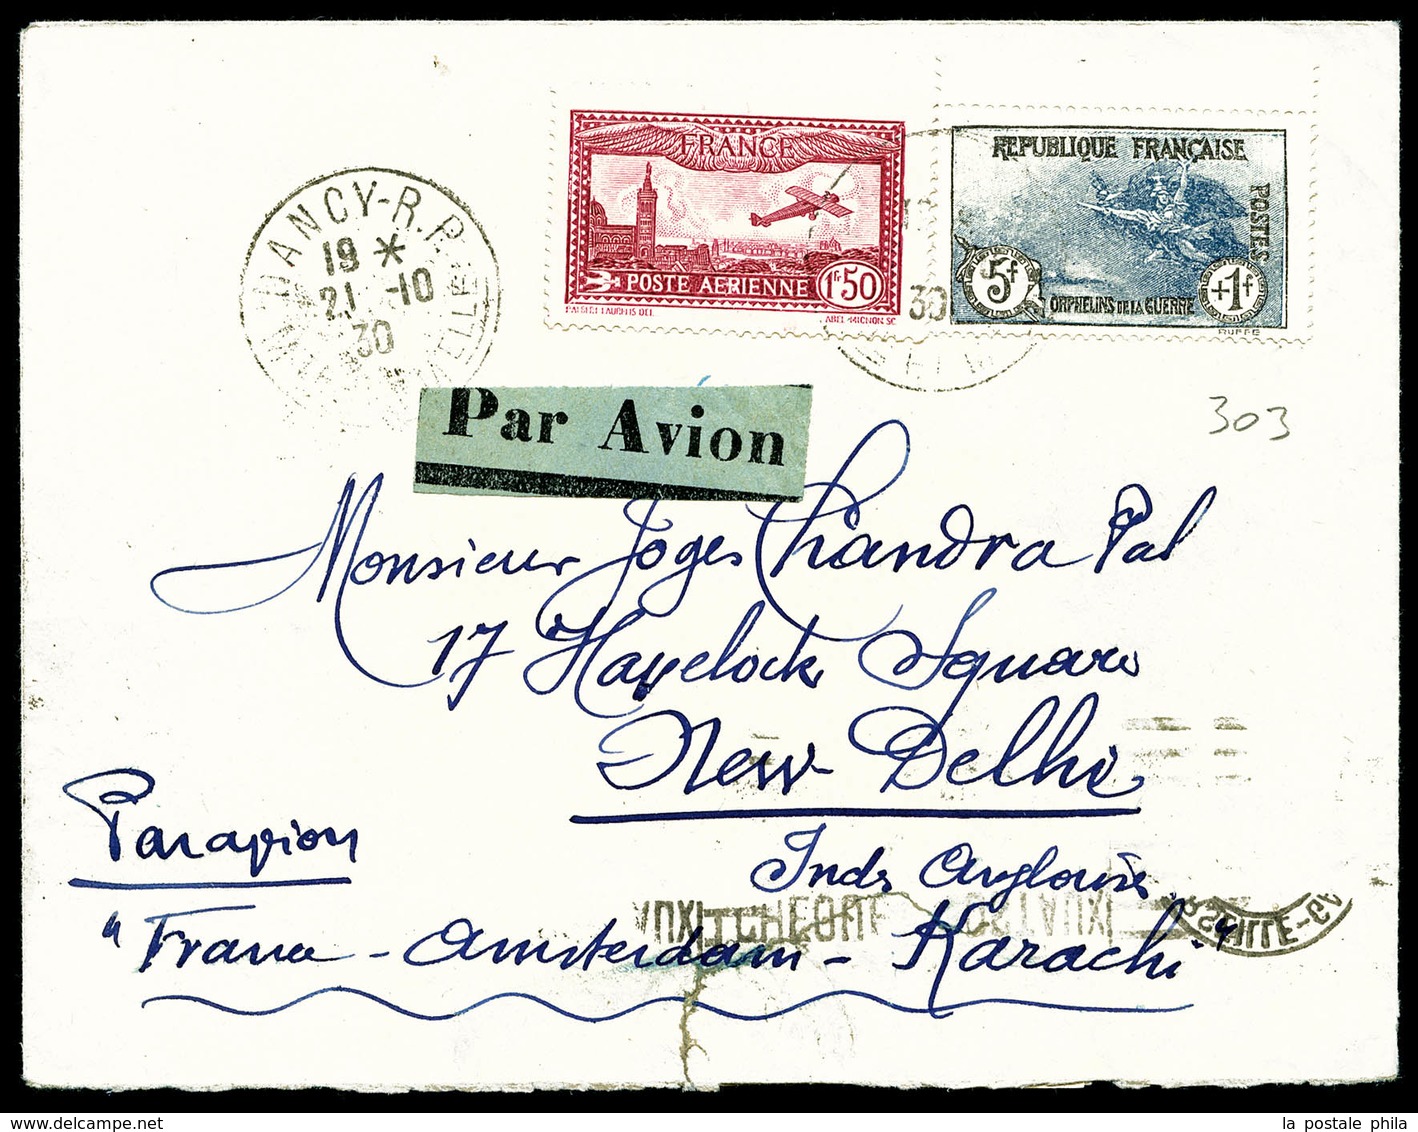 NANCY-R.P.
19 *
21 -10
30
FRANCE
POSTE AÉRIENNE
1Fr 50
ABEL-MIGNON SC
REPUBLIQUE FRANÇAISE
POSTES
5f
+1f
ORPHELINS DE LA GUERRE
RUFFE
30
303
Par Avion
Monsieur Joges Chandra Pal
17 Havelock Square
New Delhi
Indes Anglaises
Par avion
"France - Amsterdam - Karachi"
la postale phila